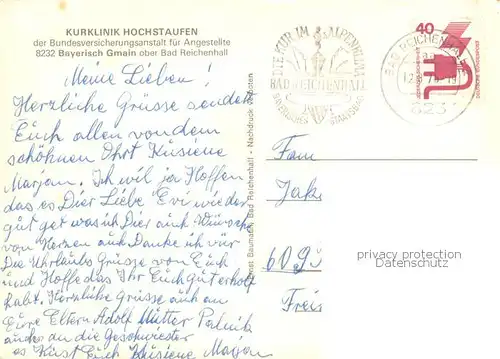 KURKLINIK HOCHSTAUFEN
der Bundesversicherungsanstalt für Angestellte
8232 Bayerisch Gmain ober Bad Reichenhall
Meine Lieben!
Herzliche Grüsse sendet
Euch allen von dem
schöhnen Ohrt Kusiene
Marjan. Ich wil ja Hoffen
das es Dier Liebe Evi wieder
gut get was ich Dier auch Wünsche
von Herzen auch Danke ich vür
Die Uhrlaubs Grüsse von Euch
und Hoffe das Ihr Euch gut erholt
habt. Herzliche Grüsse auch an
Eure Eltern Adolf Mutter
auch an die Geschwister
es Küst Euch Kusiene Marjan
Bad Reichenhall - Nachdruck verboten
DIE KUR IM ALPENKLIMA
BAD REICHENHALL
BAYERISCHES STAATSBAD
BAD REICHENHALL
823
40
DEUTSCHE BUNDESPOST
Fam
Jak
609
Freis
privacy protection
Datenschutz